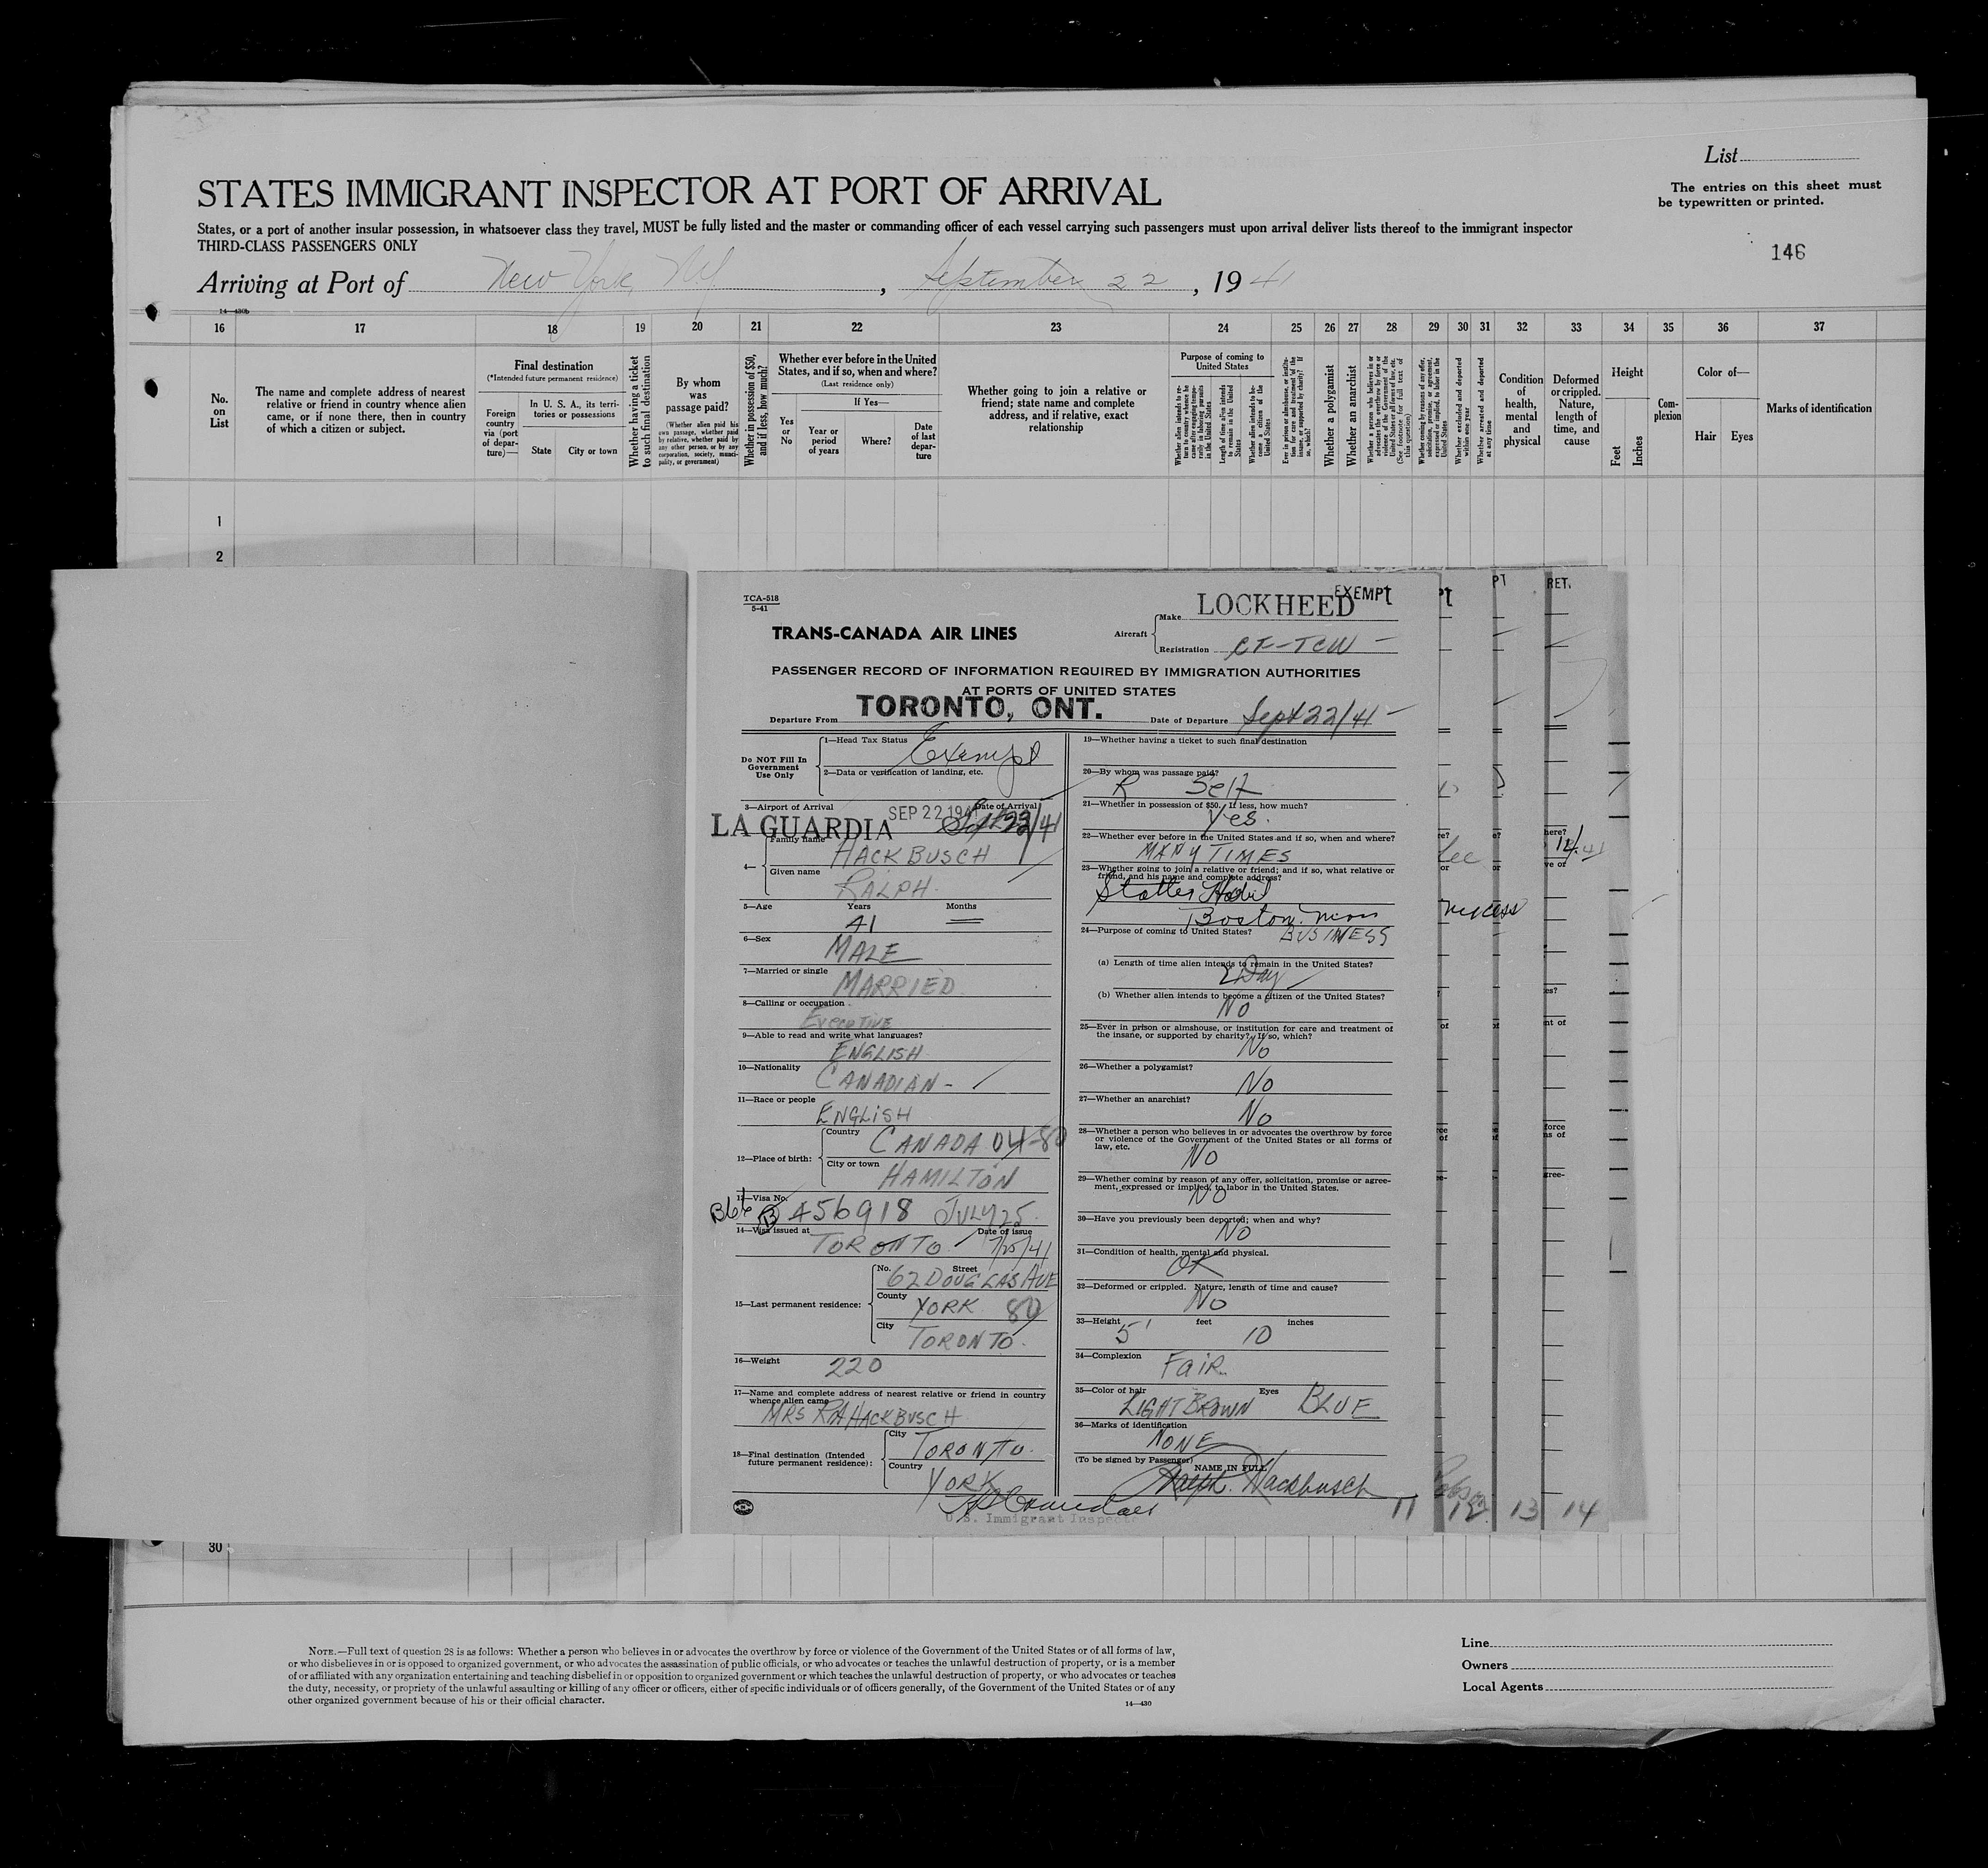 List
The entries on this sheet must
be typewritten or printed.
STATES IMMIGRANT INSPECTOR AT PORT OF ARRIVAL
States, or a port of another insular possession, in whatsoever class they travel, MUST be fully listed and the master or commanding officer of each vessel carrying such passengers must upon arrival deliver lists thereof to the immigrant inspector
THIRD-CLASS PASSENGERS ONLY
146
Arriving at Port of New York, N.Y., September 22, 1941
14—430b
16 17 18 19 20 21 22 23 24 25 26 27 28 29 30 31 32 33 34 35 36 37
No.
on
List
The name and complete address of nearest
relative or friend in country whence alien
came, or if none there, then in country
of which a citizen or subject.
Final destination
(*Intended future permanent residence)
Foreign
country
via (port
of depar-
ture)—
In U. S. A., its terri-
tories or possessions
State
City or town
Whether having a ticket
to such final destination
By whom
was
passage paid?
(Whether alien paid his
own passage, whether paid
by relative, whether paid by
any other person, or by any
corporation, society, munici-
pality, or government)
Whether in possession of $50,
and if less, how much?
Whether ever before in the United
States, and if so, when and where?
(Last residence only)
Yes
or
No
If Yes—
Year or
period
of years
Where?
Date
of last
depar-
ture
Whether going to join a relative or
friend; state name and complete
address, and if relative, exact
relationship
Purpose of coming to
United States
Whether alien intends to re-
turn to country whence he
came after engaging tempo-
rarily in laboring pursuits
in the United States
Length of time alien intends
to remain in the United
States
Whether alien intends to be-
come a citizen of the
United States
Ever in prison or almshouse, or institu-
tion for care and treatment of the
insane, or supported by charity? If
so, which?
Whether a polygamist
Whether an anarchist
Whether a person who believes in or
advocates the overthrow by force or
violence of the Government of the
United States or all forms of law, etc.
(See footnote for full text of
this question)
Whether coming by reasons of any offer,
solicitation, promise, or agreement,
expressed or implied, to labor in the
United States
Whether excluded and deported
within one year
Whether arrested and deported
at any time
Condition
of
health,
mental
and
physical
Deformed
or crippled.
Nature,
length of
time, and
cause
Height
Feet
Inches
Com-
plexion
Color of—
Hair
Eyes
Marks of identification
1
2
TCA-518
5-41
TRANS-CANADA AIR LINES
EXEMPt
Aircraft
Make LOCKHEED
Registration CF-TCW
PASSENGER RECORD OF INFORMATION REQUIRED BY IMMIGRATION AUTHORITIES
AT PORTS OF UNITED STATES
Departure From TORONTO, ONT. Date of Departure Sept 22/41
Do NOT Fill In
Government
Use Only
1—Head Tax Status Exempt
2—Data or verification of landing, etc.
3—Airport of Arrival Date of Arrival
LA GUARDIA SEP 22 194
4—
Family name HACKBUSCH
Given name RALPH
5—Age Years Months
41
6—Sex
MALE
7—Married or single
MARRIED
8—Calling or occupation
EXECUTIVE
9—Able to read and write what languages?
ENGLISH
10—Nationality
CANADIAN
11—Race or people
ENGLISH
12—Place of birth:
Country CANADA 04-80
City or town HAMILTON
13—Visa No.
B66 B 456918 JULY 25
14—Visa issued at Date of issue
TORONTO 7/25/41
15—Last permanent residence:
No. Street
62 DOUGLAS AVE
County YORK 80
City TORONTO
16—Weight 220
17—Name and complete address of nearest relative or friend in country
whence alien came
MRS RA HACKBUSCH
18—Final destination (Intended
future permanent residence):
City TORONTO
Country YORK
U.S. Immigrant Inspect
19—Whether having a ticket to such final destination
20—By whom was passage paid?
R Self
21—Whether in possession of $50. If less, how much?
Yes.
22—Whether ever before in the United States and if so, when and where?
MANY TIMES
23—Whether going to join a relative or friend; and if so, what relative or
friend, and his name and complete address?
Statler Hotel
Boston Mass
24—Purpose of coming to United States? BUSINESS
(a) Length of time alien intends to remain in the United States?
Day
(b) Whether alien intends to become a citizen of the United States?
No
25—Ever in prison or almshouse, or institution for care and treatment of
the insane, or supported by charity? If so, which?
No
26—Whether a polygamist?
No
27—Whether an anarchist?
No
28—Whether a person who believes in or advocates the overthrow by force
or violence of the Government of the United States or all forms of
law, etc.
No
29—Whether coming by reason of any offer, solicitation, promise or agree-
ment, expressed or implied, to labor in the United States.
No
30—Have you previously been deported; when and why?
No
31—Condition of health, mental and physical.
OK
32—Deformed or crippled. Nature, length of time and cause?
No
33—Height feet inches
5' 10
34—Complexion
FAIR
35—Color of hair Eyes
LIGHT BROWN BLUE
36—Marks of identification
NONE
(To be signed by Passenger) NAME IN FULL
Ralph Hackbusch
11 12 13 14
30
NOTE.—Full text of question 28 is as follows: Whether a person who believes in or advocates the overthrow by force or violence of the Government of the United States or of all forms of law,
or who disbelieves in or is opposed to organized government, or who advocates the assassination of public officials, or who advocates or teaches the unlawful destruction of property, or is a member
of or affiliated with any organization entertaining and teaching disbelief in or opposition to organized government or which teaches the unlawful destruction of property, or who advocates or teaches
the duty, necessity, or propriety of the unlawful assaulting or killing of any officer or officers, either of specific individuals or of officers generally, of the Government of the United States or of any
other organized government because of his or their official character.
14—430
Line
Owners
Local Agents